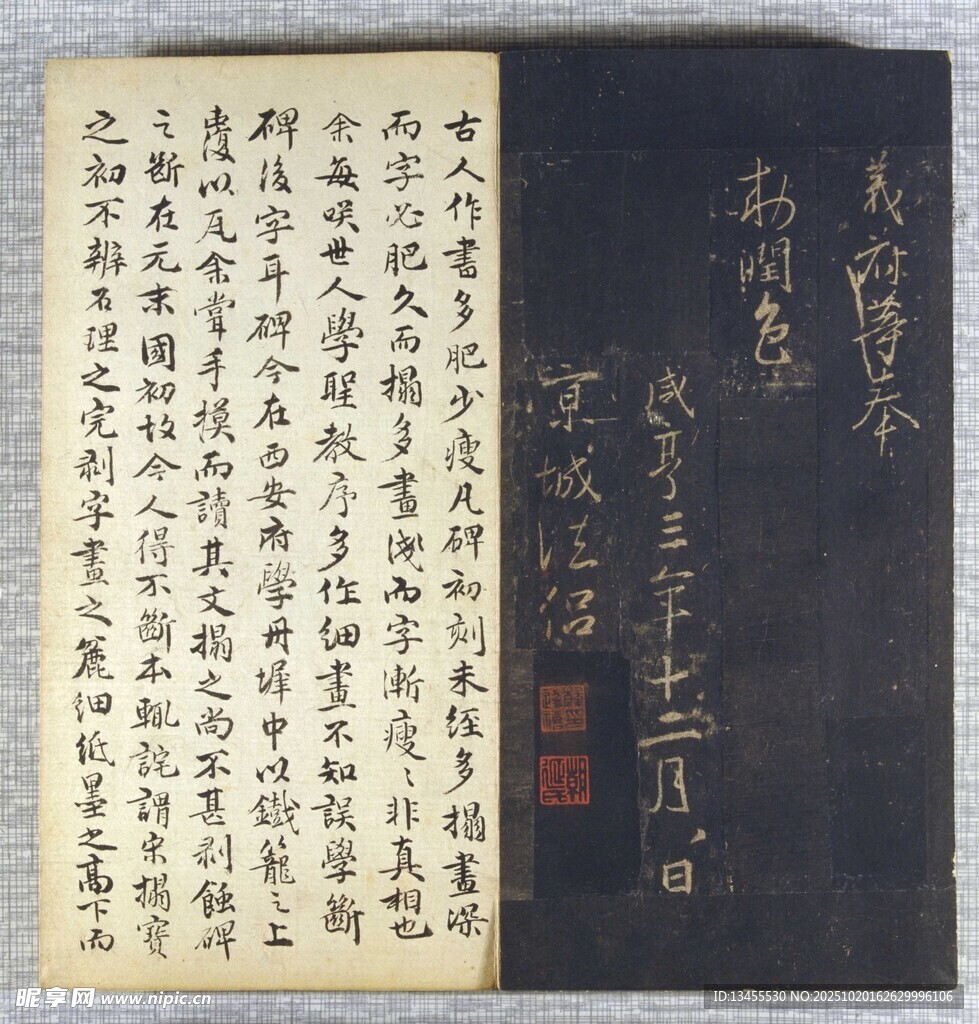 義府等奉
勅潤色
咸亨三年十二月八日
京城法侶
古人作書多肥少瘦凡碑初刻未經多搨畫深
而字必肥久而搨多畫淺而字漸瘦〻非真相也
余每咲世人學聖教序多作細畫不知誤學斷
碑後字耳碑今在西安府學丹墀中以鐵籠之上
覆以瓦余嘗手摸而讀其文搨之尚不甚剥蝕碑
之斷在元末國初故今人得不斷本輒詫謂宋搨寶
之初不辨石理之完剥字畫之麄細紙墨之高下而
昵享网 www.nipic.cn
ID:13455530 NO:20251020162629996106